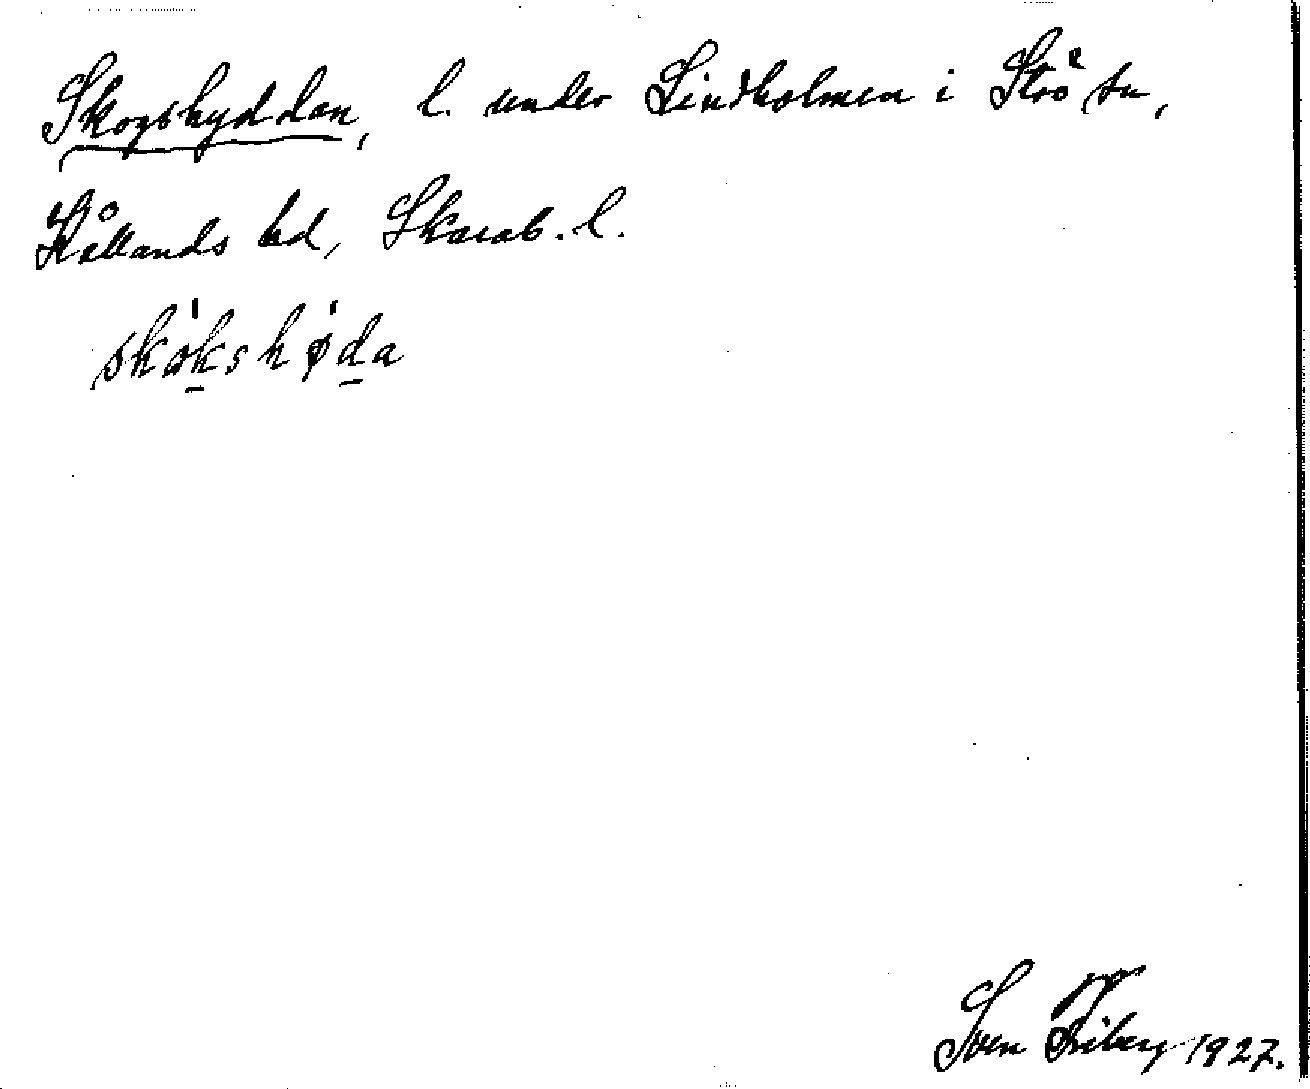 Skogshyddan, l. under Lindholmen i Strö sn,
Kållands hd, Skarab. l.
skókshǿda
Sven Friberg 1927.